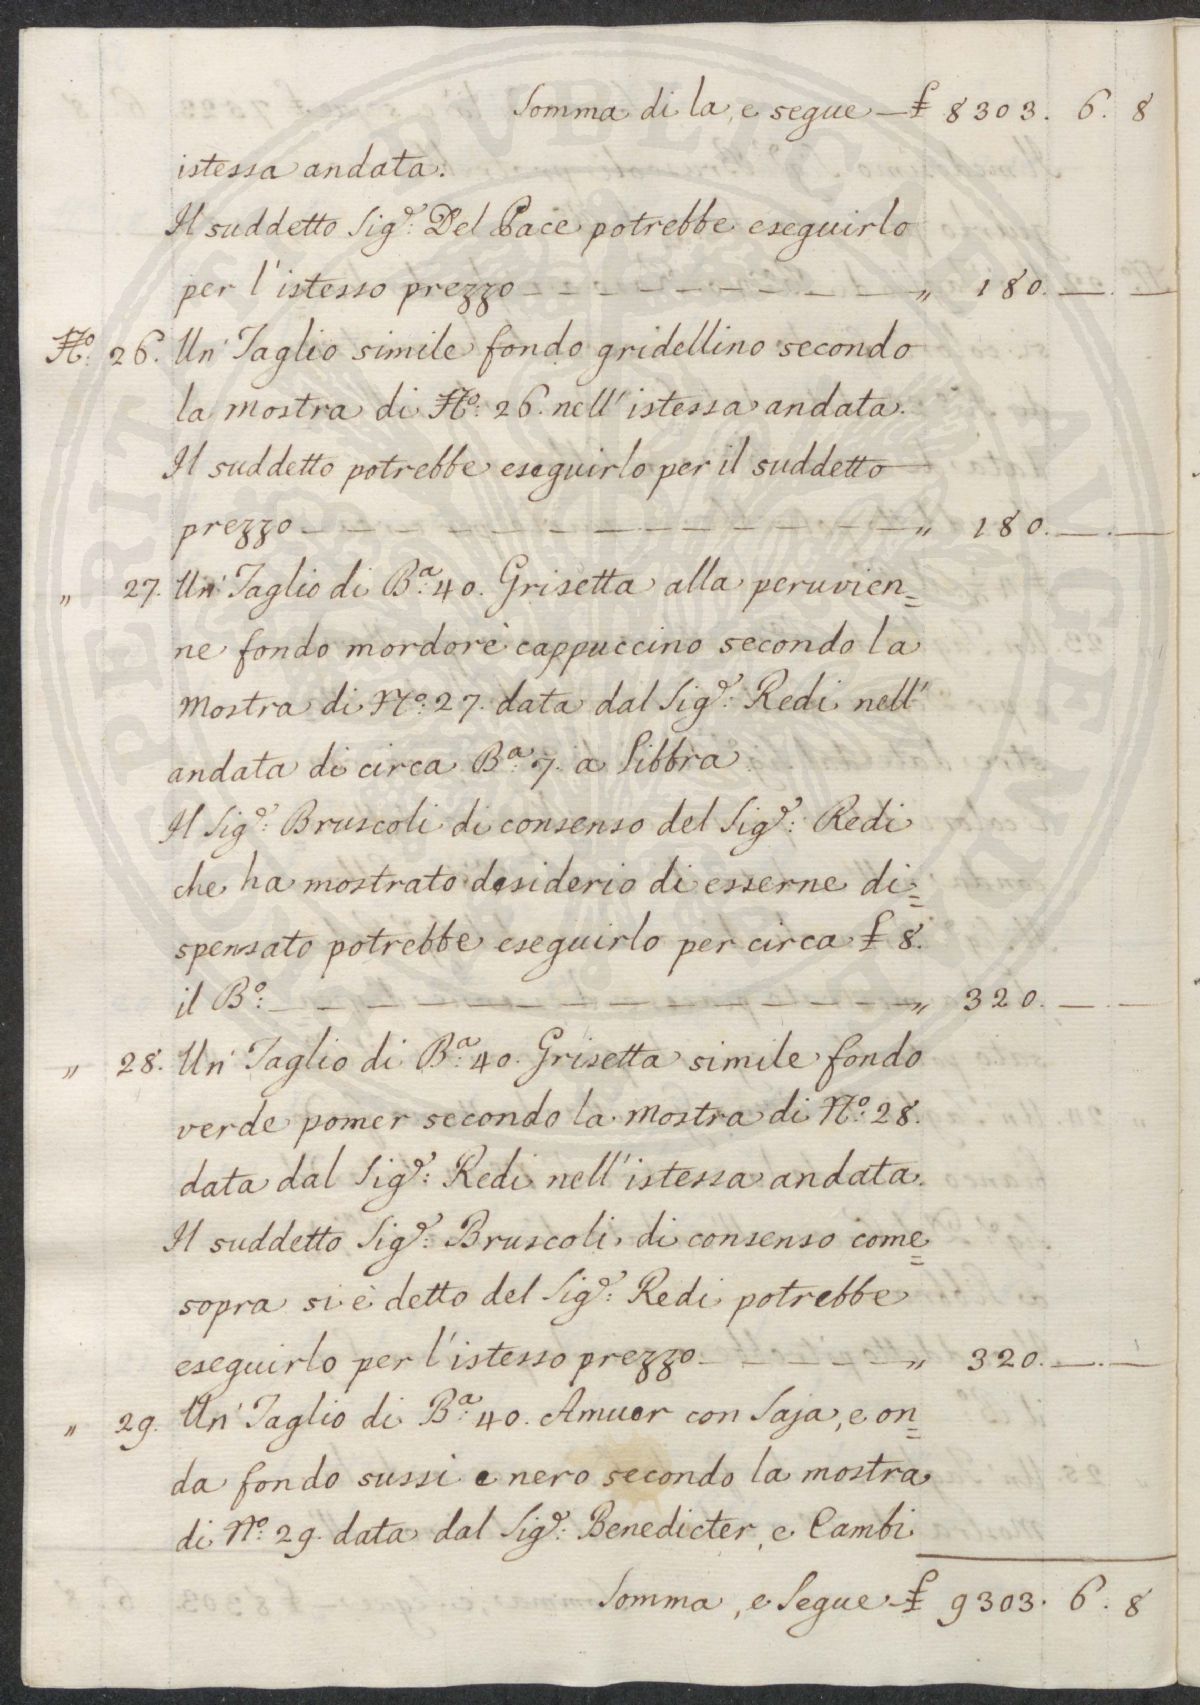 Somma di la, e segue — £ 8303. 6. 8
istessa andata.
Il suddetto Sig.r Del Pace potrebbe eseguirlo
per l'istesso prezzo — — — — — — — — — „ 180. —. —
N.o 26. Un Taglio simile fondo gridellino secondo
la mostra di N.o 26. nell'istessa andata.
Il suddetto potrebbe eseguirlo per il suddetto
prezzo — — — — — — — — — — — — „ 180. —. —
„ 27. Un Taglio di B.a 40. Grisetta alla peruvien=
ne fondo mordorè cappuccino secondo la
mostra di N.o 27. data dal Sig.r Redi nell'
andata di circa B.a 7. a Libbra
Il Sig.r Bruscoli di consenso del Sig.r Redi
che ha mostrato desiderio di esserne di=
spensato potrebbe eseguirlo per circa £ 8.
il B.o — — — — — — — — — — — — — „ 320. — —
„ 28. Un Taglio di B.a 40. Grisetta simile fondo
verde pomer secondo la mostra di N.o 28.
data dal Sig.r Redi nell'istessa andata.
Il suddetto Sig.r Bruscoli di consenso come=
sopra si è detto del Sig.r Redi potrebbe
eseguirlo per l'istesso prezzo — — — — — „ 320. —. —
„ 29. Un Taglio di B.a 40. Amuer con Saja, e on=
da fondo sussi e nero secondo la mostra
di N.o 29. data dal Sig.r Benedicter, e Cambi
Somma, e Segue £ 9303. 6. 8